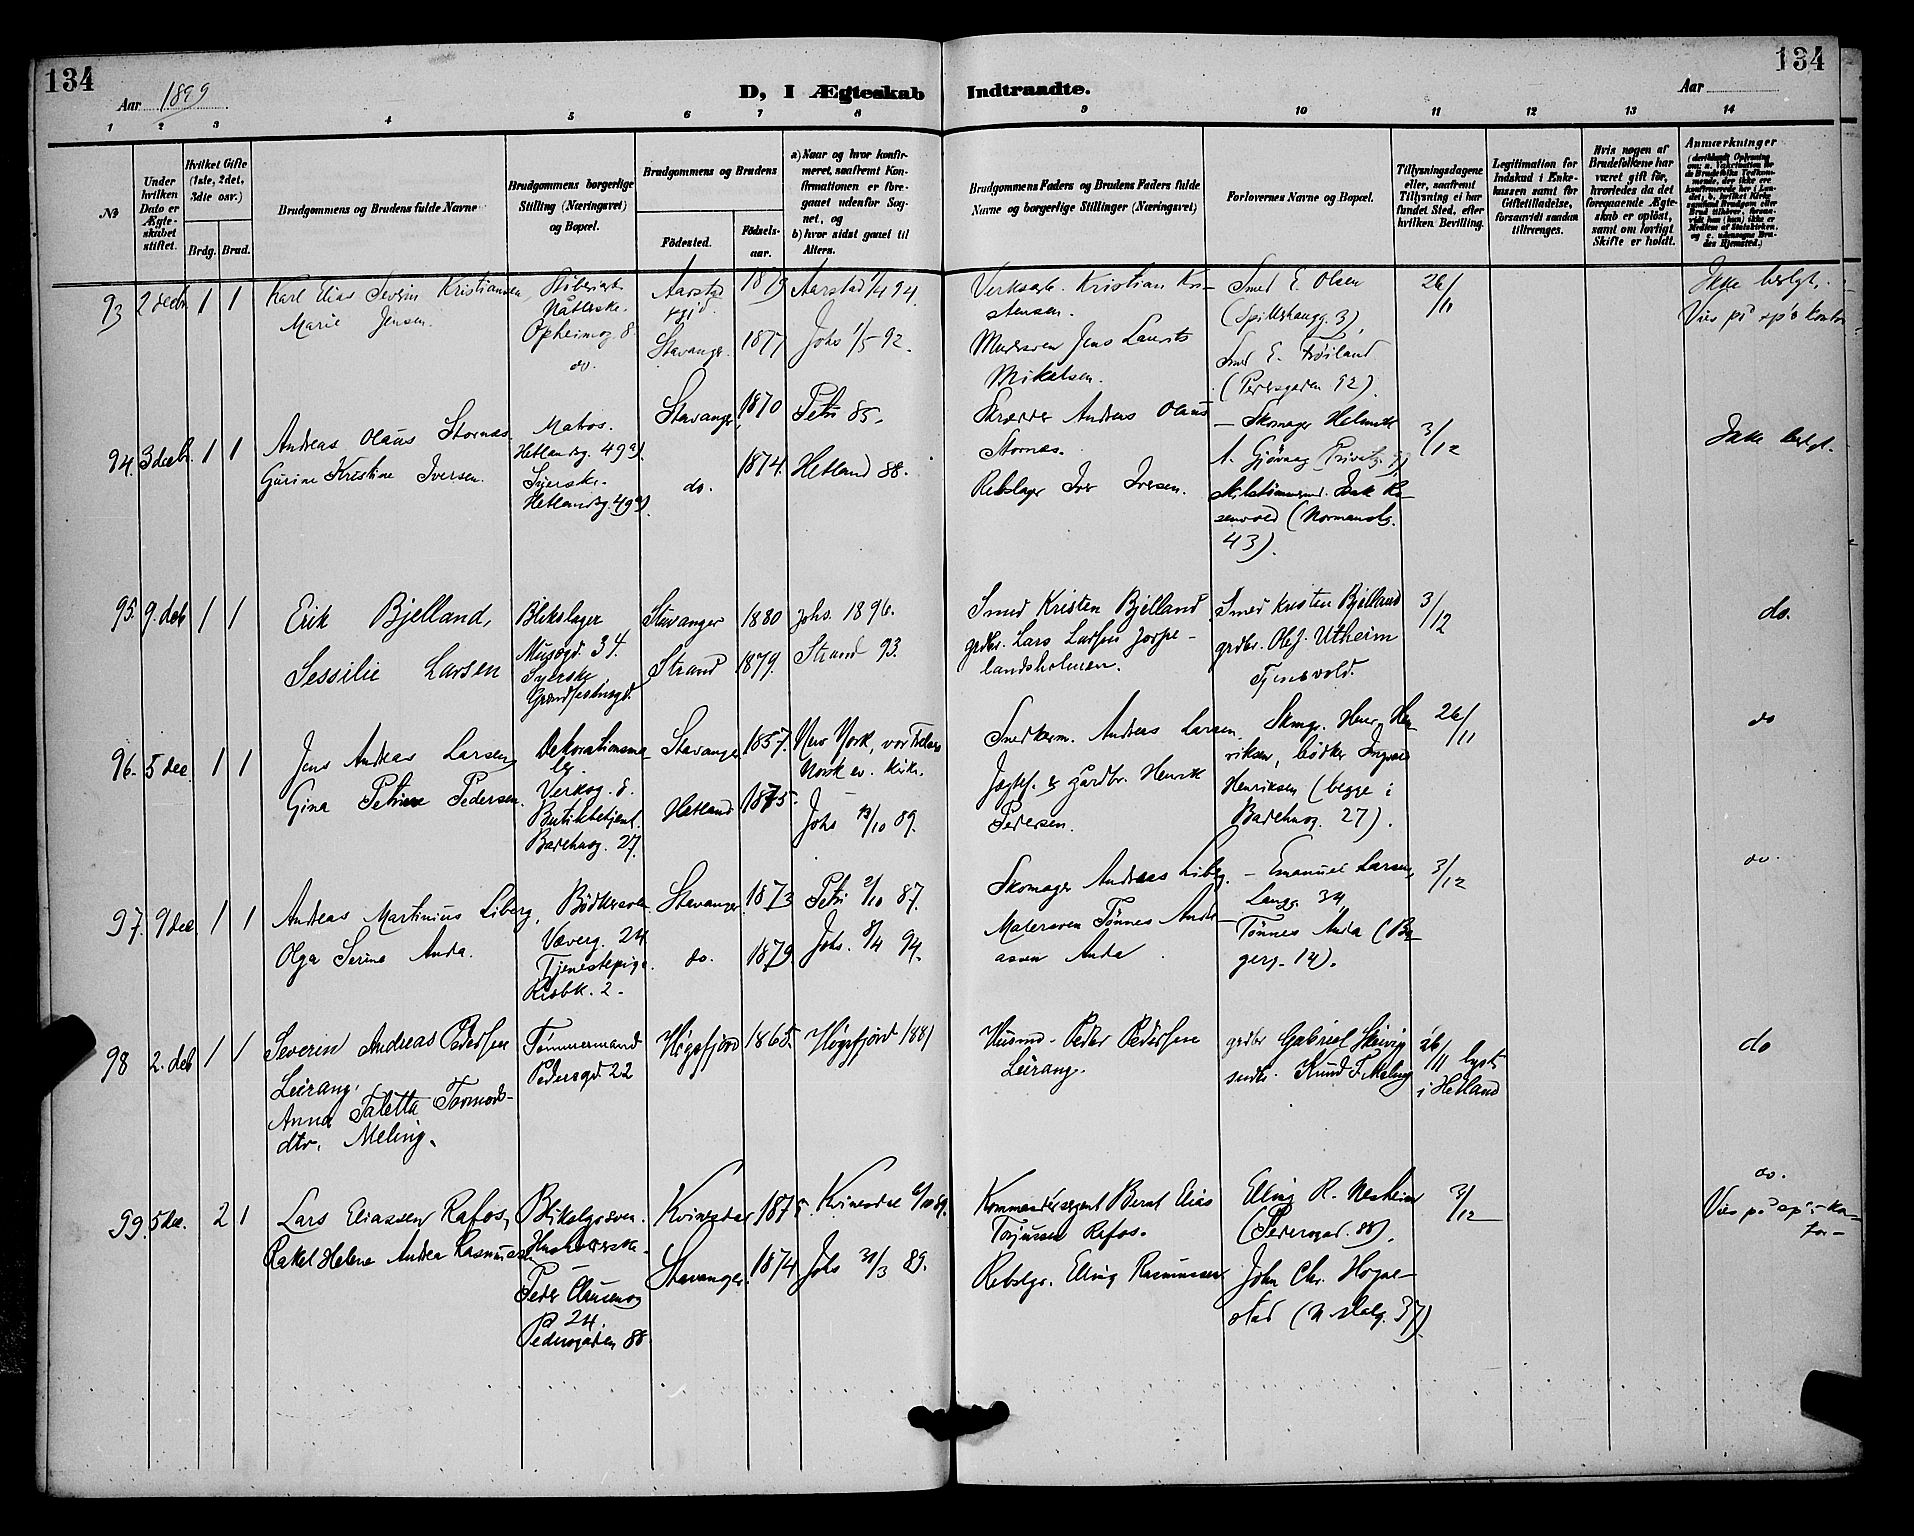 134
134
Aar 1899
D, I Ægteskab Indtraadte.
Aar
1 2 3 4 5 6 7 8 9 10 11 12 13 14
№
Under hvilken Dato er Ægteskabet stiftet.
Hvilket Gifte (1ste, 2det, 3die osv.)
Brdg. Brud.
Brudgommens og Brudens fulde Navne
Brudgommens borgerlige Stilling (Næringsvei) og Bopæl.
Brudgommens og Brudens
Födested.
Födsels-aar.
a) Naar og hvor konfirmeret, saafremt Konfirmationen er foregaaet udenfor Sognet, og
b) hvor sidst gaaet til Alters.
Brudgommens Faders og Brudens Faders fulde Navne og borgerlige Stillinger (Næringsvei)
Forlovernes Navne og Bopæl.
Tillysningsdagene eller, saafremt Tillysning ei har fundet Sted, efter hvilken Bevilling.
Legitimation for Indskud i Enkekassen samt for Giftetilladelse, forsaavidt saadan tiltrænges.
Hvis nogen af Brudefolkene har været gift før, hvorledes da det foregaaende Ægteskab er oplöst, samt om lovligt Skifte er holdt.
Anmærkninger
93 2 decb 1 1
Karl Elias Severin Kristiansen
Marie Jensen.
Opheimsg. 8
do.
Aarstad
Stavanger.
1879
1877
Aarstad 1/4 94.
Johs 1/5 92.
Kristian Kri-
stensen.
Murersven Jens Laurits
Mikalsen.
Smed E. Olsen
(Spilhaugg. 3),
Smed E. Tröiland
(Pedersgaden 92).
26/11
Ikke belgt.
Vies på kontor
94. 3 decb. 1 1
Andreas Olaus Stornæs.
Gurine Kristine Iversen.
Matros.
Hetlandsg. 49a).
Syerske.
Hetlandsg. 49a).
Stavanger
do.
1870
1874.
Petri 85.
Hetland 88.
Skrædder Andreas Olaus
Stornæs.
Rebslager Iver Iversen.
— Skomager Helmik
A. Gjövaag
Skibstömmermd. Isak Ro-
senvold (Normandsg.
43).
3/12
Ikke belgt.
95. 9. deb 1 1
Erik Bjelland,
Sessilie Larsen
Blikslager
Musegd. 34.
Syerske
Stavanger
Strand
1880
1879.
Johs. 1896.
Strand 93.
Smed Kristen Bjelland
grdbr. Lars Larsen Jørpe-
landsholmen.
Smed Kristen Bjelland
grdbr. Ole J. Utheim
Tjensvold.
3/12
do.
96. 5 dec. 1 1
Jens Andreas Larsen
Gina Petrine Pedersen.
Dekorationsma-
ler
Verksg. 8.
Butikbetjent.
Badehusg. 27.
Stavanger
Hetland
1857.
1875.
New York, vor Frelsers
Norsk ev. kirke.
Johs 13/10 89.
Snedkerm. Andreas Larsen.
Jægtef. & gårdbr. Henrik
Pedersen.
Skmg. Henr. Hen-
riksen, bödker Ingvald
Henriksen (begge i
Badehusg. 27).
26/11
do
97. 9 dec 1 1
Andreas Martinius Liberg,
Olga Serine Anda.
Bödkersven.
Væverg. 24
Tjenestepige.
Kirkbk. 2.
Stavanger.
do.
1873
1879.
Petri 2/10 87.
Johs. 8/4 94.
Skomager Andreas Liberg.
Malersven Tönnes Andr-
assen Anda.
— Emanuel Larsen,
Langg. 34,
Tönnes Anda (Ba-
gerg. 14).
3/12
do.
98 2. deb 1 1
Severin Andreas Pedersen
Leirang.
Anna Taletta Tormods-
dtr. Meling.
Tømmermand
Pedersgd 22
Høgsfjord
1865.
Høgsfjord 1881
Husmd. Peder Pedersen
Leirang.
grdbr Gabriel Skeivig
snedk. Knud T. Meling
26/11 lyst
i Hetland
do
99. 5 dec. 2 1
Lars Eliassen Rafos,
Rakel Helene Andrea Rasmussen.
Blikslgrsven.
Husholderske.
Peder Clausensg
24.
Pedersgaden 88
Kvinesdal
Stavanger.
1875.
1874
Kvinesdal 6/10 89.
Johs 31/3 89.
Kommandersergent Bernt Elias
Torjussen Rafos.
Rebslgr. Elling Rasmussen
Elling R. Nesheim
(Pedersgad. 88).
John Chr. Hogne-
stad (N. Dalg. 37)
3/12
do.
Vies på sp.-kon-
tor—